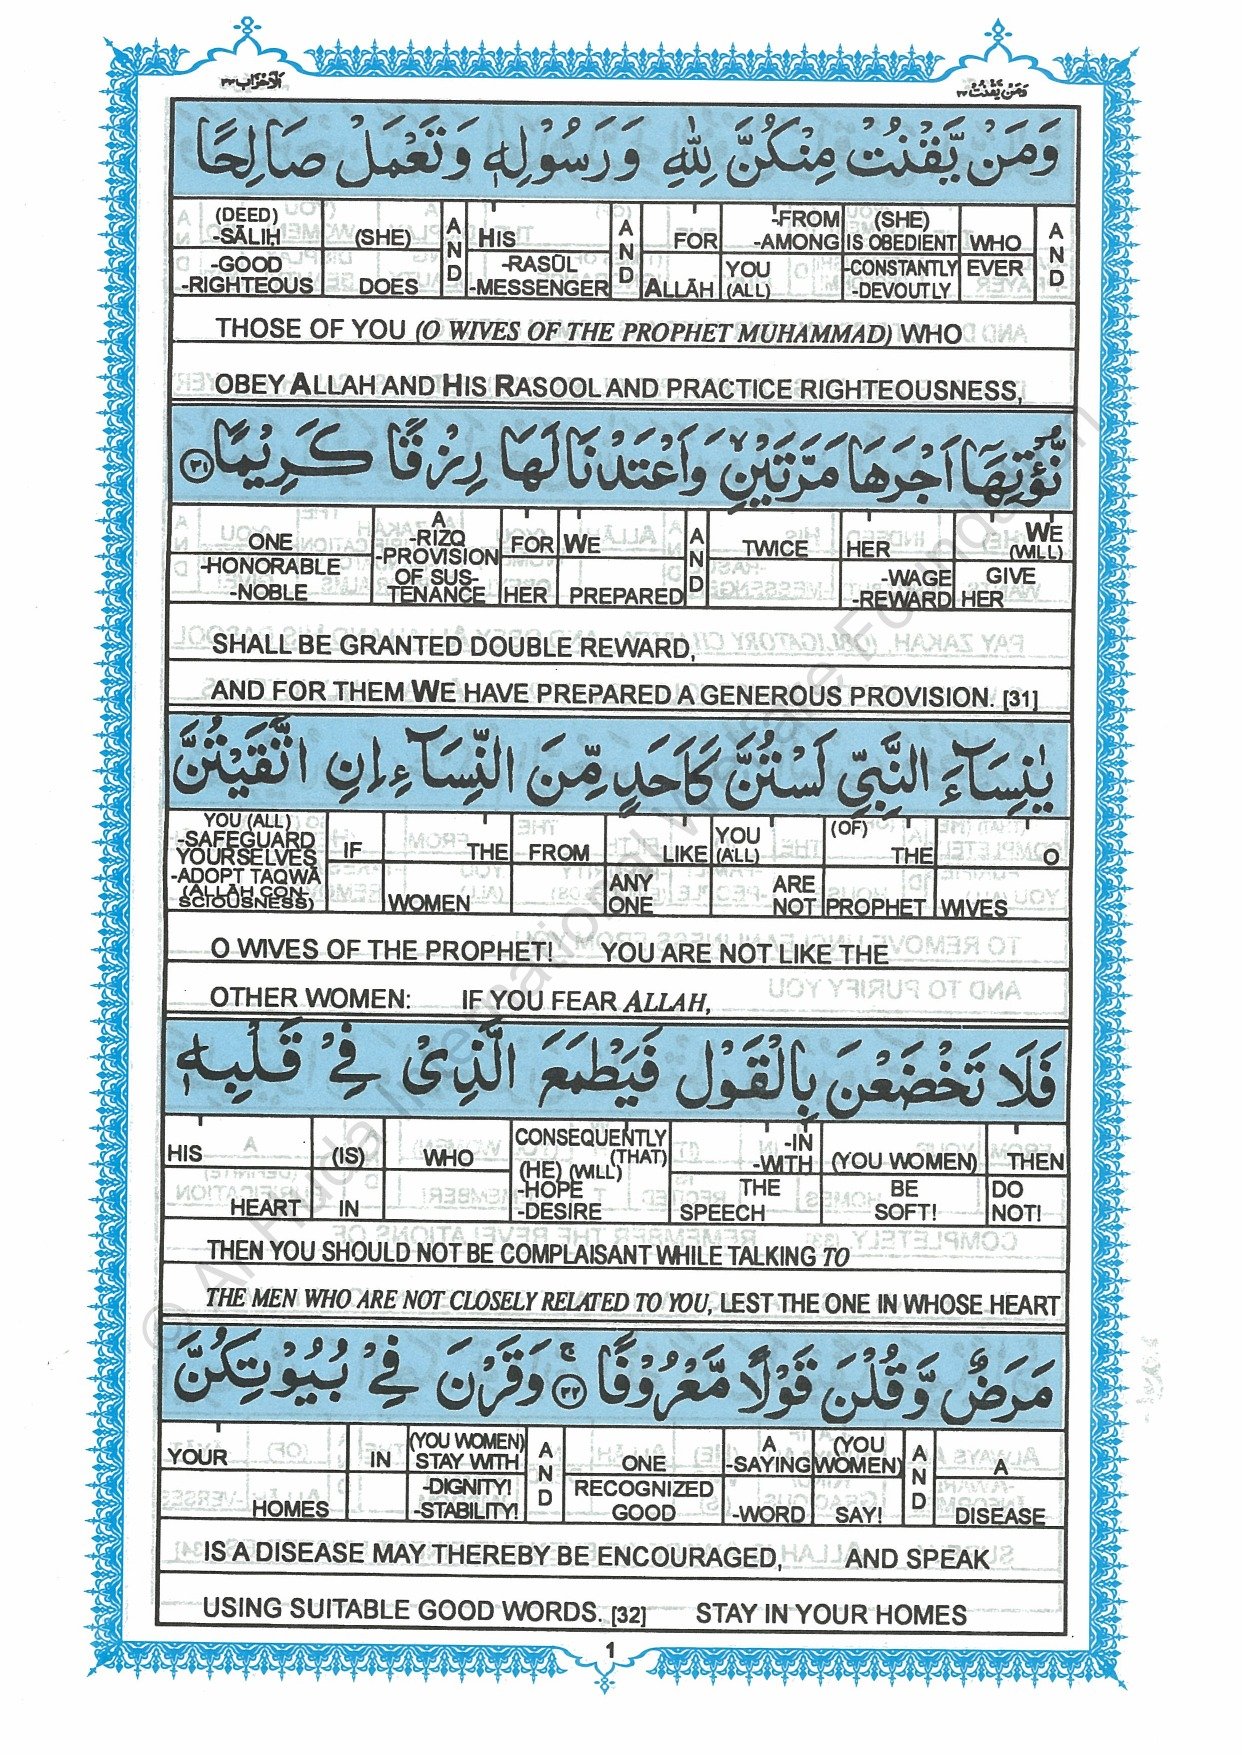 اَلْاَحْزَاب ٣٣
وَمَنْ يَّقْنُتْ ٢٢
وَمَنْ يَّقْنُتْ مِنْكُنَّ لِلّٰهِ وَرَسُوْلِهٖ وَتَعْمَلْ صَالِحًا
(DEED) -SĀLIH -GOOD -RIGHTEOUS (SHE) DOES AND HIS -RASŪL -MESSENGER AND FOR ALLĀH -FROM -AMONG YOU (ALL) (SHE) IS OBEDIENT -CONSTANTLY -DEVOUTLY WHO EVER AND
THOSE OF YOU (O WIVES OF THE PROPHET MUHAMMAD) WHO
OBEY ALLAH AND HIS RASOOL AND PRACTICE RIGHTEOUSNESS,
نُّؤْتِهَآ اَجْرَهَا مَرَّتَيْنِ وَاَعْتَدْنَا لَهَا رِزْقًا كَرِيْمًا ٣١
ONE -HONORABLE -NOBLE A -RIZQ -PROVISION OF SUS- TENANCE FOR HER WE PREPARED AND TWICE HER -WAGE -REWARD WE (WILL) GIVE HER
SHALL BE GRANTED DOUBLE REWARD,
AND FOR THEM WE HAVE PREPARED A GENEROUS PROVISION. [31]
يٰنِسَآءَ النَّبِيِّ لَسْتُنَّ كَاَحَدٍ مِّنَ النِّسَآءِ اِنِ اتَّقَيْتُنَّ
YOU (ALL) -SAFEGUARD YOURSELVES -ADOPT TAQWĀ (ALLĀH CON- SCIOUSNESS) IF THE WOMEN FROM LIKE ANY ONE YOU (ALL) ARE NOT (OF) THE PROPHET O WIVES
O WIVES OF THE PROPHET! YOU ARE NOT LIKE THE
OTHER WOMEN: IF YOU FEAR ALLAH,
فَلَا تَخْضَعْنَ بِالْقَوْلِ فَيَطْمَعَ الَّذِيْ فِيْ قَلْبِهٖ
HIS HEART (IS) IN WHO CONSEQUENTLY (THAT) (HE) (WILL) -HOPE -DESIRE -IN -WITH THE SPEECH (YOU WOMEN) BE SOFT! THEN DO NOT!
THEN YOU SHOULD NOT BE COMPLAISANT WHILE TALKING TO
THE MEN WHO ARE NOT CLOSELY RELATED TO YOU, LEST THE ONE IN WHOSE HEART
مَرَضٌ وَّقُلْنَ قَوْلًا مَّعْرُوْفًا ٣٢ وَقَرْنَ فِيْ بُيُوْتِكُنَّ
YOUR HOMES IN (YOU WOMEN) STAY WITH -DIGNITY! -STABILITY! AND ONE RECOGNIZED GOOD A -SAYING -WORD (YOU WOMEN) SAY! AND A DISEASE
IS A DISEASE MAY THEREBY BE ENCOURAGED, AND SPEAK
USING SUITABLE GOOD WORDS. [32] STAY IN YOUR HOMES
1